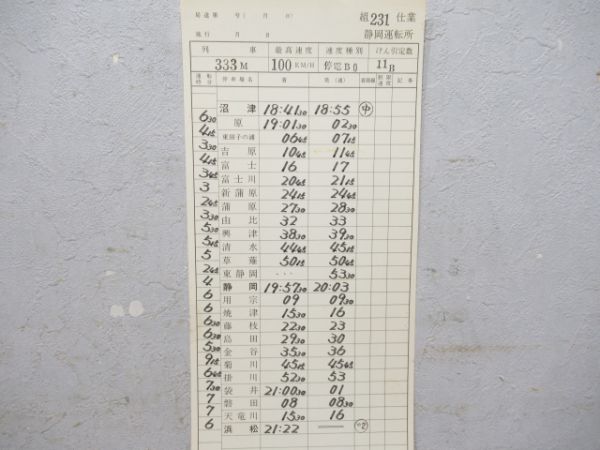 局達第 号( 月 日)
組 231 仕業
施行 月 日
静岡運転所
列 車 最高速度 速度種別 けん引定数
333M 100KM/H 停電B0 11B
運転時分 停車場名 着 発(通) 着発線 制限速度 記事
沼津 18:41 30 18:55 中
6 30 原 19:01 30 02 30
4 15 東田子の浦 06 45 07 15
3 30 吉原 10 45 11 45
4 15 富士 16 17
3 45 富士川 20 45 21 15
3 新蒲原 24 15 24 45
2 45 蒲原 27 30 28 30
3 30 由比 32 33
5 30 興津 38 30 39 30
5 15 清水 44 45 45 15
5 草薙 50 15 50 45
2 45 東静岡 ... 53 30
4 静岡 19:57 30 20:03
6 用宗 09 09 30
6 焼津 15 30 16
6 30 藤枝 22 30 23
6 30 島田 29 30 30
5 30 金谷 35 30 36
9 15 菊川 45 15 45 45
6 45 掛川 52 30 53
7 30 袋井 21:00 30 01
7 磐田 08 08 30
7 天竜川 15 30 16
6 浜松 21:22 —